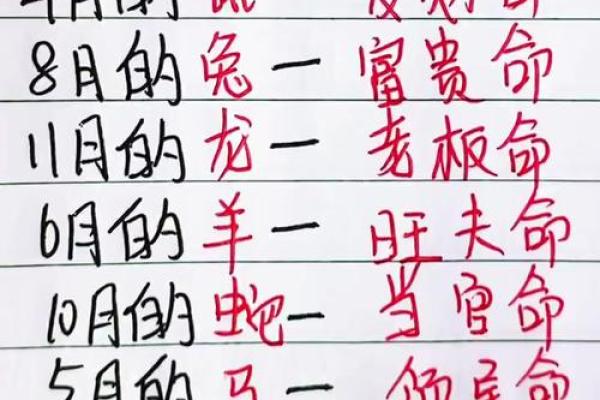 月的
8月的兔一富贵命
11月的龙一老板命
6月的羊一旺夫命
10月的蛇一当官命
5月的马一命